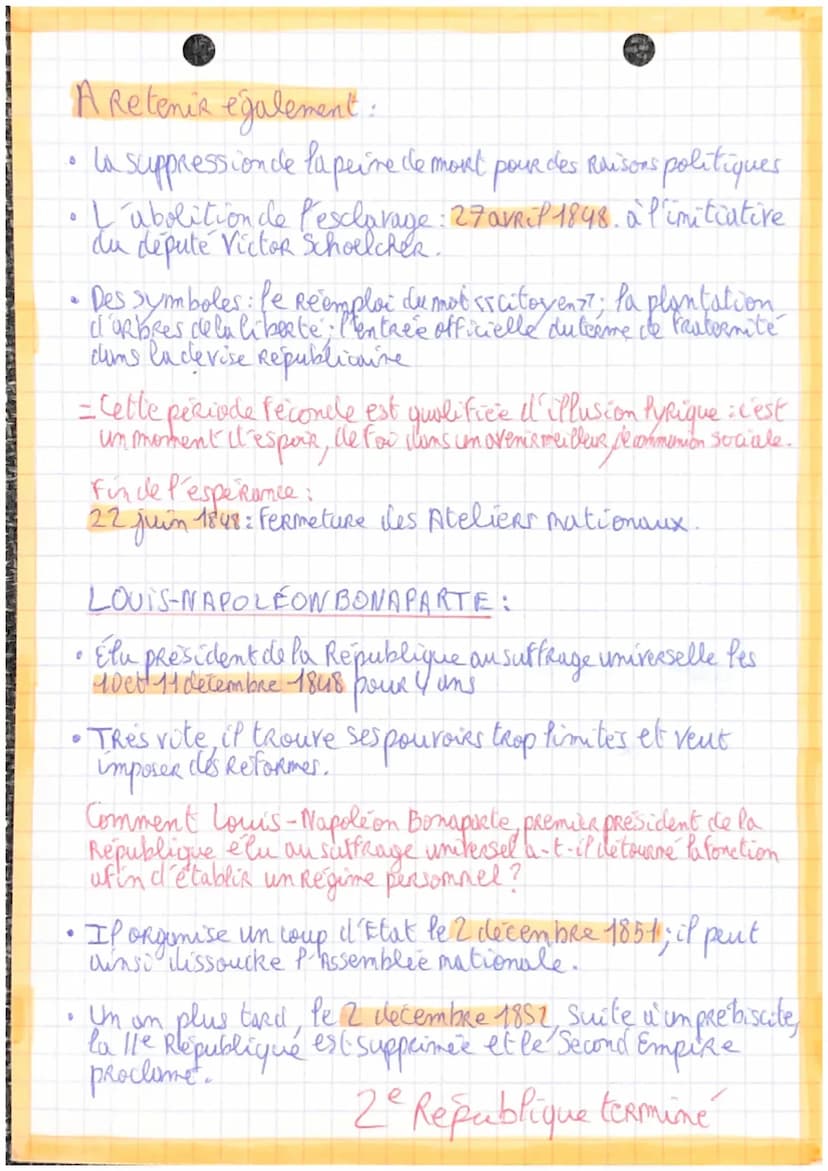 A Retenir également :
• La suppression de la peine de mort pour des raisons politiques
• L'abolition de l'esclavage : 27 avril 1848. à l'initiative
du député Victor Schoelcher.
• Des symboles : le réemploi du mot «citoyen»; la plantation
d'arbres de la liberté ; l'entrée officielle du terme de fraternité
dans la devise Républicaine
= Cette période féconde est qualifiée d'illusion lyrique : c'est
un moment d'espoir, de foi dans un avenir meilleur, de communion sociale.
Fin de l'espérance :
22 juin 1848 : Fermeture des Ateliers nationaux.
LOUIS-NAPOLÉON BONAPARTE :
• Élu président de la République au suffrage universelle les
10 et 11 décembre 1848 pour 4 ans
• Très vite, il trouve ses pouvoirs trop limités et veut
imposer des réformes.
Comment Louis-Napoléon Bonaparte, premier président de la
République élu au suffrage universel a-t-il détourné la fonction
afin d'établir un régime personnel ?
• Il organise un coup d'Etat le 2 décembre 1851; il peut
ainsi dissoudre l'Assemblée nationale.
• Un an plus tard, le 2 décembre 1852, suite à un prébiscite,
la IIe République est supprimée et le Second Empire
proclamé.
2e République terminé